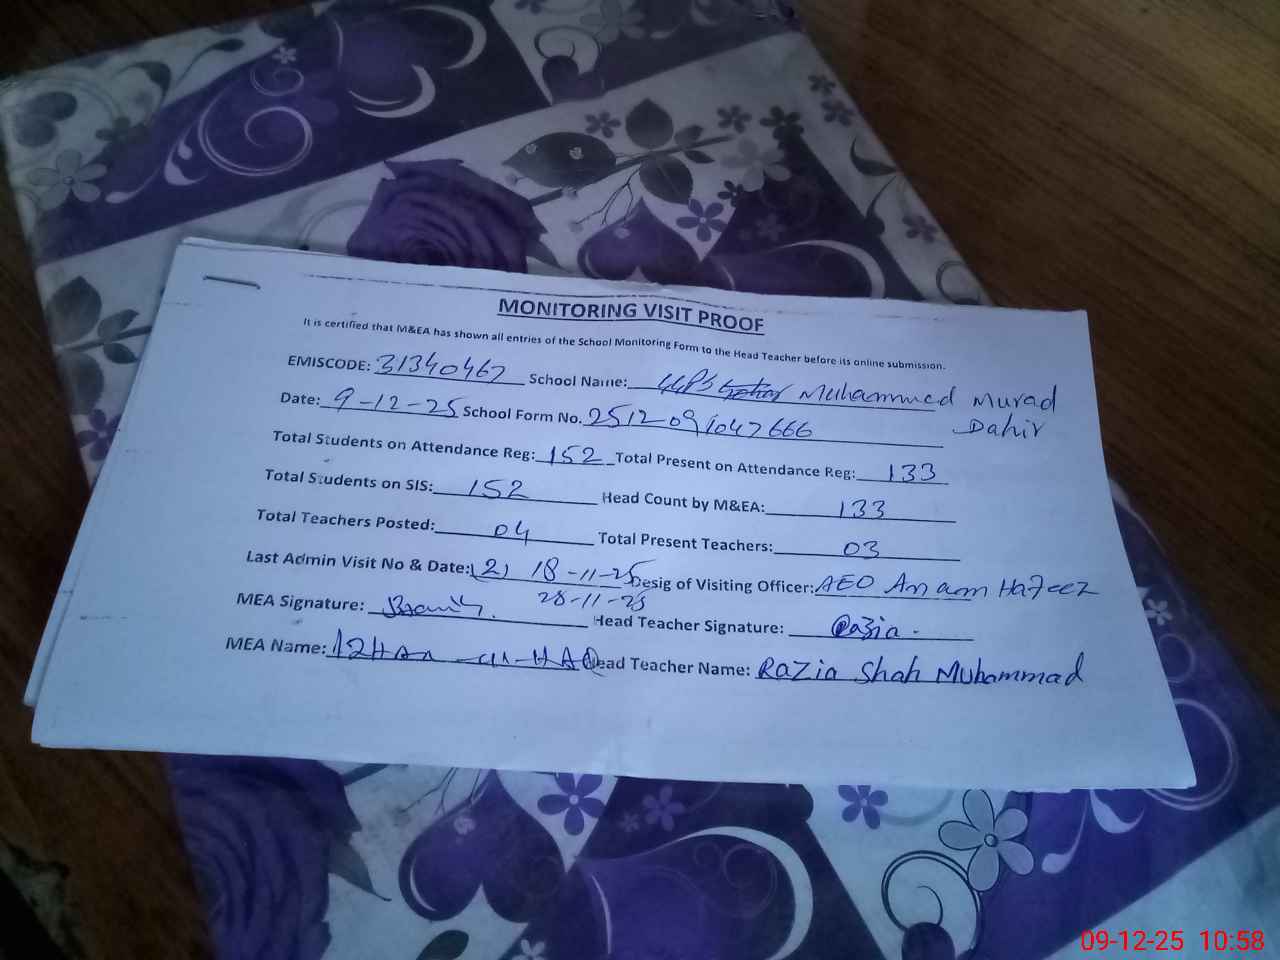 MONITORING VISIT PROOF
It is certified that M&EA has shown all entries of the School Monitoring Form to the Head Teacher before its online submission.
EMISCODE: 31340467 School Name: Muhammad Murad
Dahir
Date: 9-12-25 School Form No. 2512091047666
Total Students on Attendance Reg: 152 Total Present on Attendance Reg: 133
Total Students on SIS: 152 Head Count by M&EA: 133
Total Teachers Posted: 04 Total Present Teachers: 03
Last Admin Visit No & Date: (2) 18-11-25 Desig of Visiting Officer: AEO Anam Hafeez
28-11-25
MEA Signature: Head Teacher Signature: Razia.
MEA Name: Head Teacher Name: Razia Shah Muhammad
09-12-25 10:58